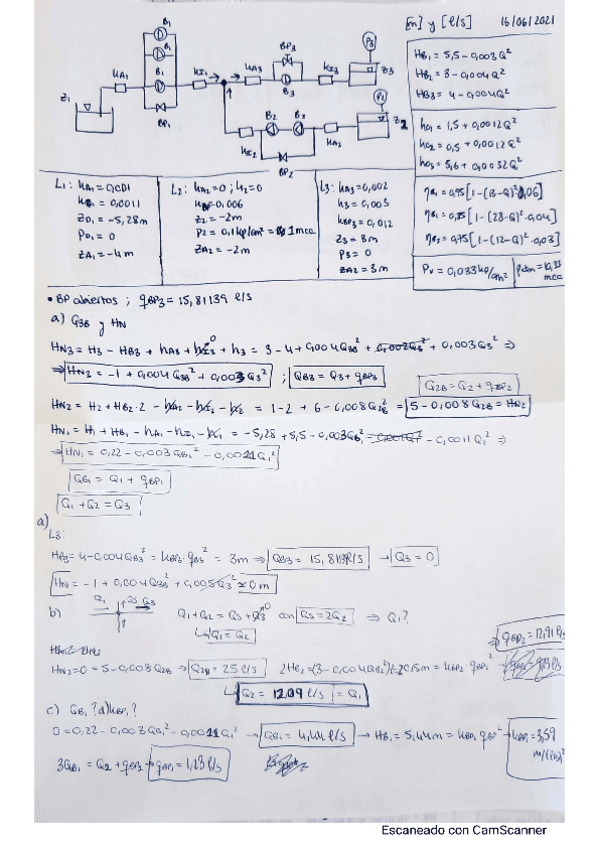 [m] y [l/s] 16/06/2021
B1
B1
B1
BP1
Z1
KA1
KI1
KA3
BP3
B3
KI3
P3
Z3
B2
B2
KI2
KA2
BP2
P2
Z2
HB1 = 5,5 - 0,003Q²
HB2 = 3 - 0,004Q²
HB3 = 4 - 0,004Q²
ho1 = 1,5 + 0,0012Q²
ho2 = 0,5 + 0,0012Q²
ho3 = 5,6 + 0,0032Q²
L1: KA1 = 0,001
= 0,0011
ZD1 = -5,28m
PD1 = 0
ZA1 = -4m
L2: KA2 = 0 ; K2 = 0
= 0,006
Z2 = -2m
P2 = 0,1 kp/cm² = 1mca
ZA2 = -2m
L3: KA3 = 0,002
K3 = 0,003
KBP3 = 0,012
Z3 = 3m
P3 = 0
ZA2 = 3m
Pv = 0,033 kp/cm² Patm = 10,33 mca
• BP abiertos ; qBP3 = 15,81139 l/s
a) Q3B y HN
HN3 = H3 - HB3 + hA3 + hI3 + h3 = 3 - 4 + 0,004Q3B² + 0,002Q3² + 0,003Q3² ⇒
⇒ HN3 = -1 + 0,004Q3B² + 0,005Q3² ; QB3 = Q3 + qBP3
Q2B = Q2 + qBP2
HN2 = H2 + HB2·2 - hA2 - hI2 - h2 = 1 - 2 + 6 - 0,008Q2B² = 5 - 0,008Q2B = HN2
HN1 = H1 + HB1 - hA1 - hI1 - h1 = -5,28 + 5,5 - 0,003QB1² - 0,0011Q1² ⇒
⇒ HN1 = 0,22 - 0,003QB1² - 0,0011Q1²
QB1 = Q1 + qBP1
Q1 + Q2 = Q3
a)
L3:
HB3 = 4 - 0,004QB3² = KBP3·qB3² = 3m ⇒ QB3 = 15,811 l/s → Q3 = 0
HN = -1 + 0,004Q3B² + 0,005Q3² ≃ 0m
b) Q1 QS Q3 Q1 + Q2 = QS + Q3 con QS = 2Q2 ⇒ Q1?
↳ Q1 = Q2
⇒ qBP2 = 12,91 l/s
HN2 = 0 = 5 - 0,008Q2B → Q2B = 25 l/s
↳ Q2 = 12,09 l/s = Q1
c) QB1? a) KBP1?
0 = 0,22 - 0,003QB1² - 0,0011Q1² → QB1 = 4,44 l/s → HB1 = 5,44m = KBP1 qBP² → KBP1 = 3,59 m/(l/s)²
3QB1 = Q2 + qBP2 → qBP1 = 1,23 l/s
Escaneado con CamScanner